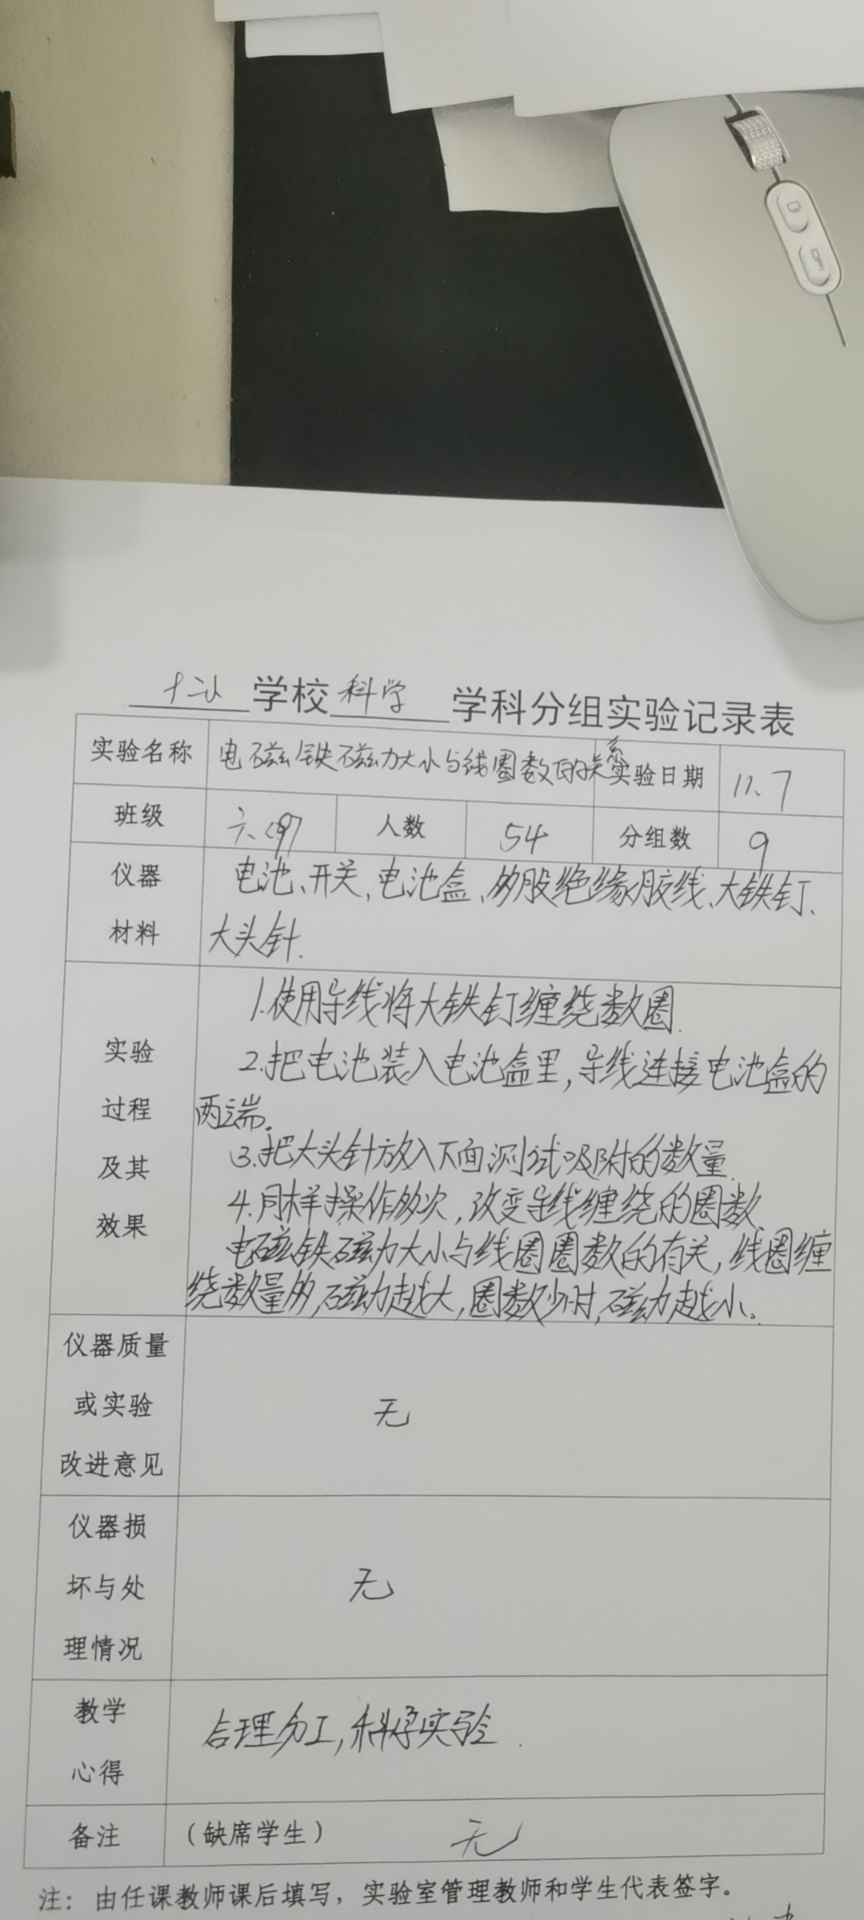 十二小学校科学学科分组实验记录表
实验名称 电磁铁磁力大小与线圈数的关系 实验日期 11、7
班级 六(9) 人数 54 分组数 9
仪器材料 电池、开关、电池盒、多股绝缘胶线、大铁钉、
大头针.
实验过程及其效果
1.使用导线将大铁钉缠绕数圈.
2.把电池装入电池盒里,导线连接电池盒的
两端。
3.把大头针放入下面测试吸附的数量.
4.同样操作多次,改变导线缠绕的圈数.
电磁铁磁力大小与线圈圈数的有关,线圈缠
绕数量多,磁力越大,圈数少时,磁力越小。
仪器质量
或实验
改进意见
无
仪器损
坏与处
理情况
无
教学
心得
合理分工,科学实验.
备注 (缺席学生) 无
注:由任课教师课后填写,实验室管理教师和学生代表签字。